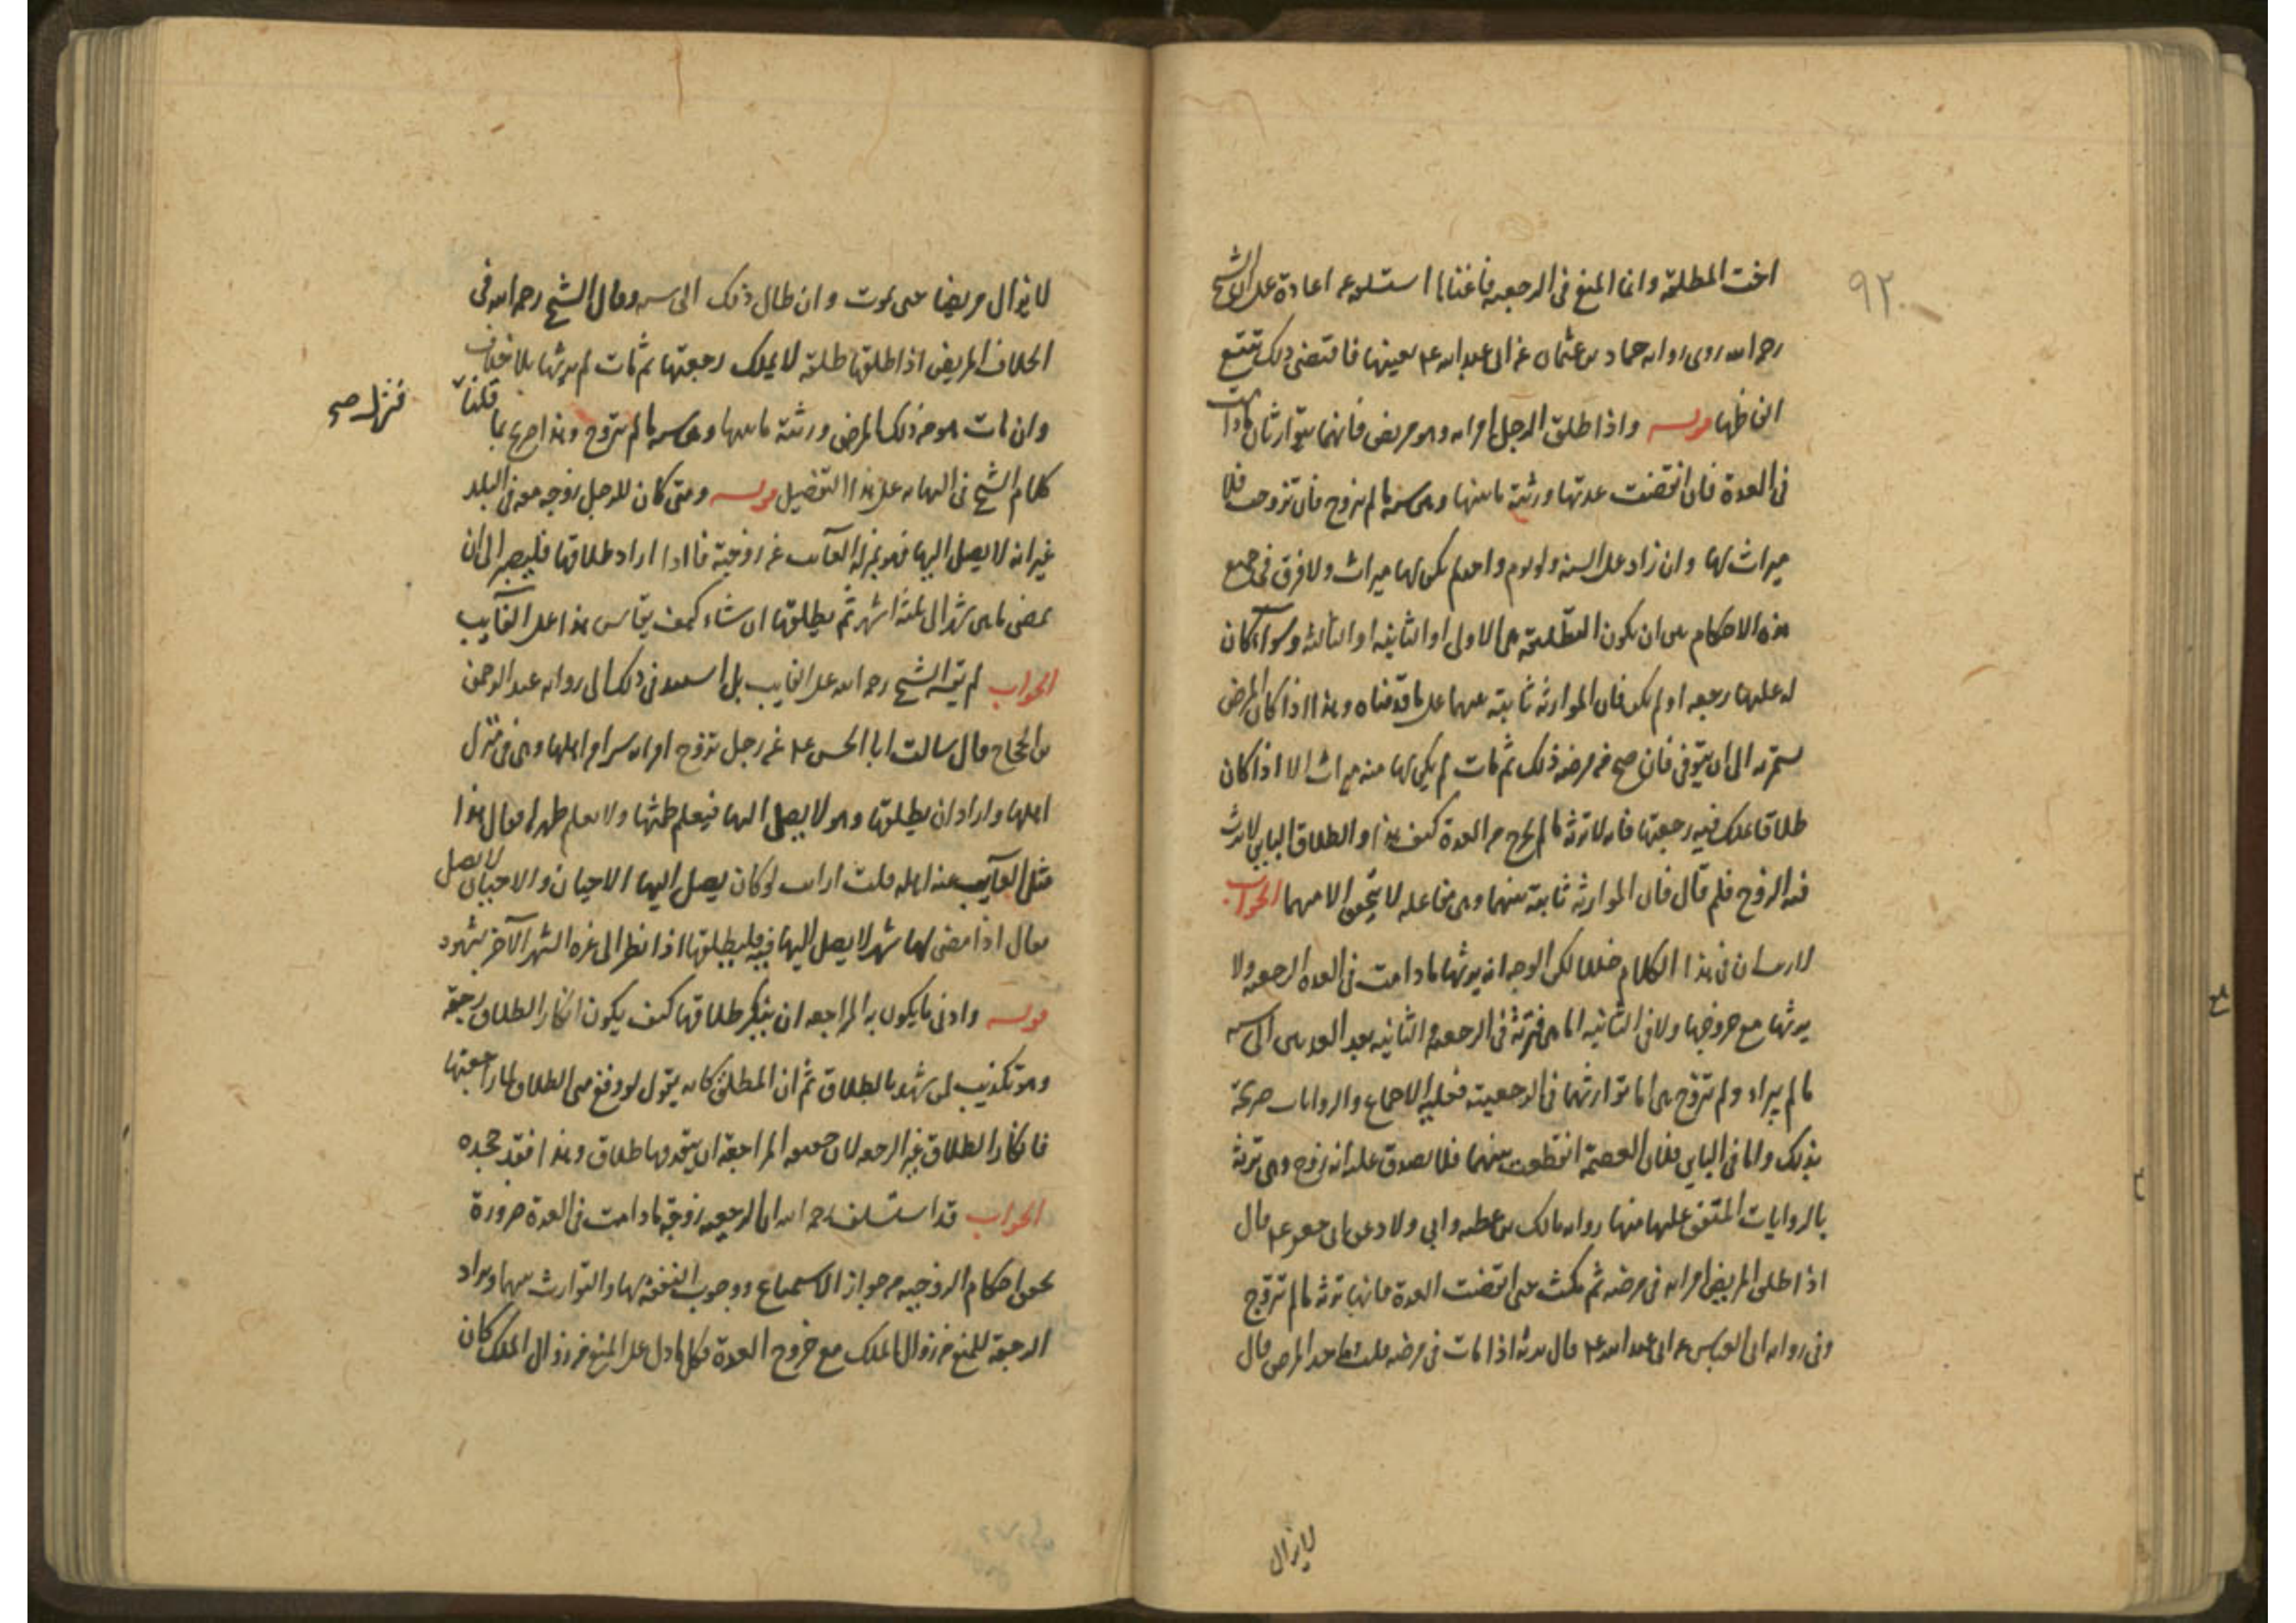 ٩٢
اخت المطلقة وانما المنع فى الرجعيه فاغننا استلوعه اعادة على ان الشيخ
رحمه الله روى روايه حماد بن عثمان عن ابى عبد الله ع بعينها فاقتضى ذلك تتبع
الفاظها قوله واذا طلق الرجل امراته وهو مريض فانهما يتوارثان مادامت
فى العدة فان انقضت عدتها ورثته ما بينها وبين سنة ما لم تتزوج فان تزوجت فلا
ميراث لها وان زاد على السنه ولو يوم واحد لم يكن لها ميراث ولا فرق فى جميع
هذه الاحكام بين ان يكون التطليقة هى الاولى او الثانيه او الثالثه وسواء كان
له عليها رجعه او لم يكن فان الموارثه ثابتة بينهما على ما قدمناه وهذا اذا كان المرض
يستمر به الى ان يتوفى فان صح من مرضه ذلك ثم مات لم يكن لها منه ميراث الا اذا كان
طلاقا يملك فيه رجعتها فانه لا ترثه ما لم تخرج من العدة كيف هذا والطلاق الباين لا يرث
فيه الزوج فلم قال فان الموارثه ثابتة بينهما وهى مفاعله لا يتحقق الا منهما الجواب
لا ريب ان فى هذا الكلام خللا لكن الوجه انه يرثها مادامت فى العدة الرجعيه ولا
يرثها مع خروجها ولا فى الثانيه اما هى فترثه فى الرجعيه والثانيه بعد العدة الى سنه
ما لم يبراء ولم تتزوج هى اما توارثهما فى الرجعية فعليه الاجماع والروايات صريحة
بذلك واما فى الباين فلان العصمة انقطعت بينهما فلا يصدق عليه انه زوج وهى ترثه
بالروايات المتفق عليها منها روايه مالك بن عطيه وابى ولاد عن ابى جعفر ع قال
اذا طلق المريض امراته فى مرضه ثم مكث حتى انقضت العدة فانها ترثه ما لم تتزوج
وفى روايه ابى العباس عن ابى عبد الله ع قال ترثه اذا مات فى مرضه قلت فما حد المرض قال
لايزال
لايزال مريضا حتى يموت وان طال ذلك الى سنه وقال الشيخ رحمه الله فى
الخلاف المريض اذا طلقها طلقة لا يملك رجعتها ثم ماتت لم يرثها بلا خلاف
وان مات هو من ذلك المرض ورثته ما بينها وبين سنة ما لم تتزوج وهذا صريح بما قلناه
فنزل صح
كلام الشيخ فى النهايه على هذا التفصيل قوله ومتى كان للرجل زوجه معه فى البلد
غير انه لا يصل اليها فهو بمنزلة الغائب عن زوجته فاذا اراد طلاقها فليصبر الى ان
يمضى ما بين شهر الى ثلثه اشهر ثم يطلقها ان شاء كيف يقاس هذا على الغائب
الجواب لم يقسه الشيخ رحمه الله على الغايب بل استند فى ذلك الى روايه عبد الرحمن
بن الحجاج قال سالت ابا الحسن ع عن رجل تزوج امراه سرا من اهلها وهى فى منزل
اهلها واراد ان يطلقها وهو لا يصل اليها فيعلم طمثها ولا يعلم طهرها فقال هذا
مثل الغائب عنه اهله قلت ارايت لو كان يصل اليها الاحيان والاحيان لا يصل
فقال اذا مضى لها شهر لا يصل اليها فيه فليطلقها اذا نظر الى غره الشهر الآخر بشهود
قوله وادنى ما يكون به المراجعه ان ينكر طلاقها كيف يكون انكار الطلاق رجعة
وهو تكذيب لمن شهد بالطلاق ثم ان المطلق كانه يقول لو وقع منى الطلاق لما راجعتها
فانكار الطلاق غير الرجعه لان حقيقه المراجعة ان يتقدمها طلاق وهذا فقد جحده
الجواب قد اسـتسلف رحمه الله ان الرجعيه زوجة مادامت فى العدة ضرورة
تحقق احكام الزوجيه من جواز الاستمتاع ووجوب النفقه لها والتوارث بينهما ويراد
الرجعة للمنع من زوال الملك مع خروج العدة فكل ما دل على المنع من زوال الملك كان